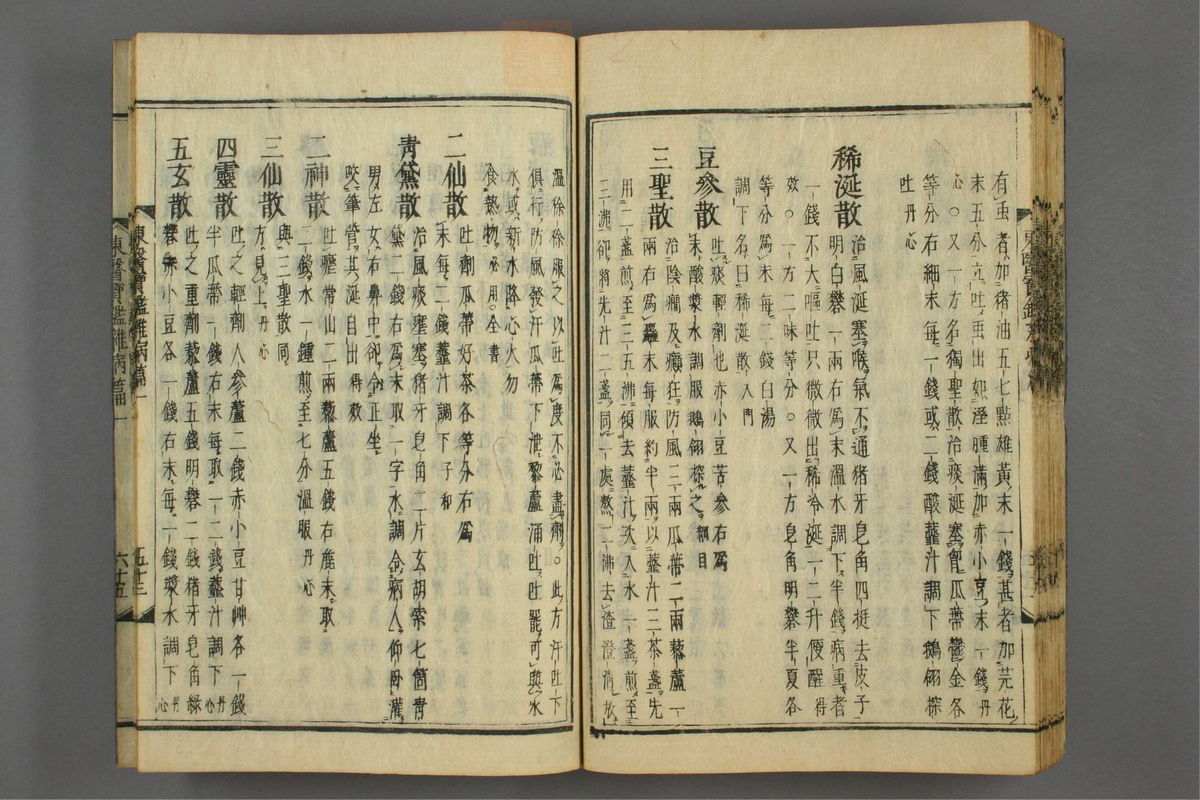 有虫者加猪油五七點雄黃末一錢甚者加芫花
末五分立吐虫出如溼腫滿加赤小豆末一錢丹
心○又一方名獨聖散治痰涎塞胷瓜蔕鬱金各
等分右細末每一錢或二錢酸虀汁調下鵝翎探
吐丹心
稀涎散治風涎塞喉氣不通猪牙皂角四挺去皮子
明白礬一兩右爲末溫水調下半錢病重者
一錢不大嘔吐只微微出稀冷涎一二升便醒得
效○一方二味等分○又一方皂角明礬半夏各
等分爲末每二錢白湯
調下名曰稀涎散入門
豆參散吐痰輕劑也赤小豆苦參右爲
末酸漿水調服鵝翎探之綱目
三聖散治陰癎及癲狂防風三兩瓜蔕二兩藜蘆一
兩右爲麤末每服約半兩以虀汁三茶盞先
用二盞煎至三五沸傾去虀汁次入水一盞煎至
三沸却將先汁二盞同一處熬二沸去滓澄淸放
溫徐徐服之以吐爲度不必盡劑○此方汗吐下
俱行防風發汗瓜蔕下泄藜蘆涌吐吐罷可與氷
水或新水降心火勿
食熱物必用全書
二仙散吐劑瓜蔕好茶各等分右爲
末每二錢虀汁調下子和
靑黛散治風痰壅塞猪牙皂角二片玄胡索七箇靑
黛二錢右爲末取一字水調令病人仰臥灌
男左女右鼻中却令正坐
咬筆管其涎自出得效
二神散吐瘧常山二兩藜蘆五錢右麤末取
二錢水一鍾煎至七分溫服丹心
三仙散與三聖散同
方見上丹心
四靈散吐之輕劑人參蘆二錢赤小豆甘艸各一錢
半瓜蔕一錢右末每取一二錢虀汁調下丹心
五玄散吐之重劑藜蘆五錢明礬二錢猪牙皂角綠
礬赤小豆各一錢右末每一錢漿水調下丹心
東醫寶鑑雜病篇一
五十三
六十五